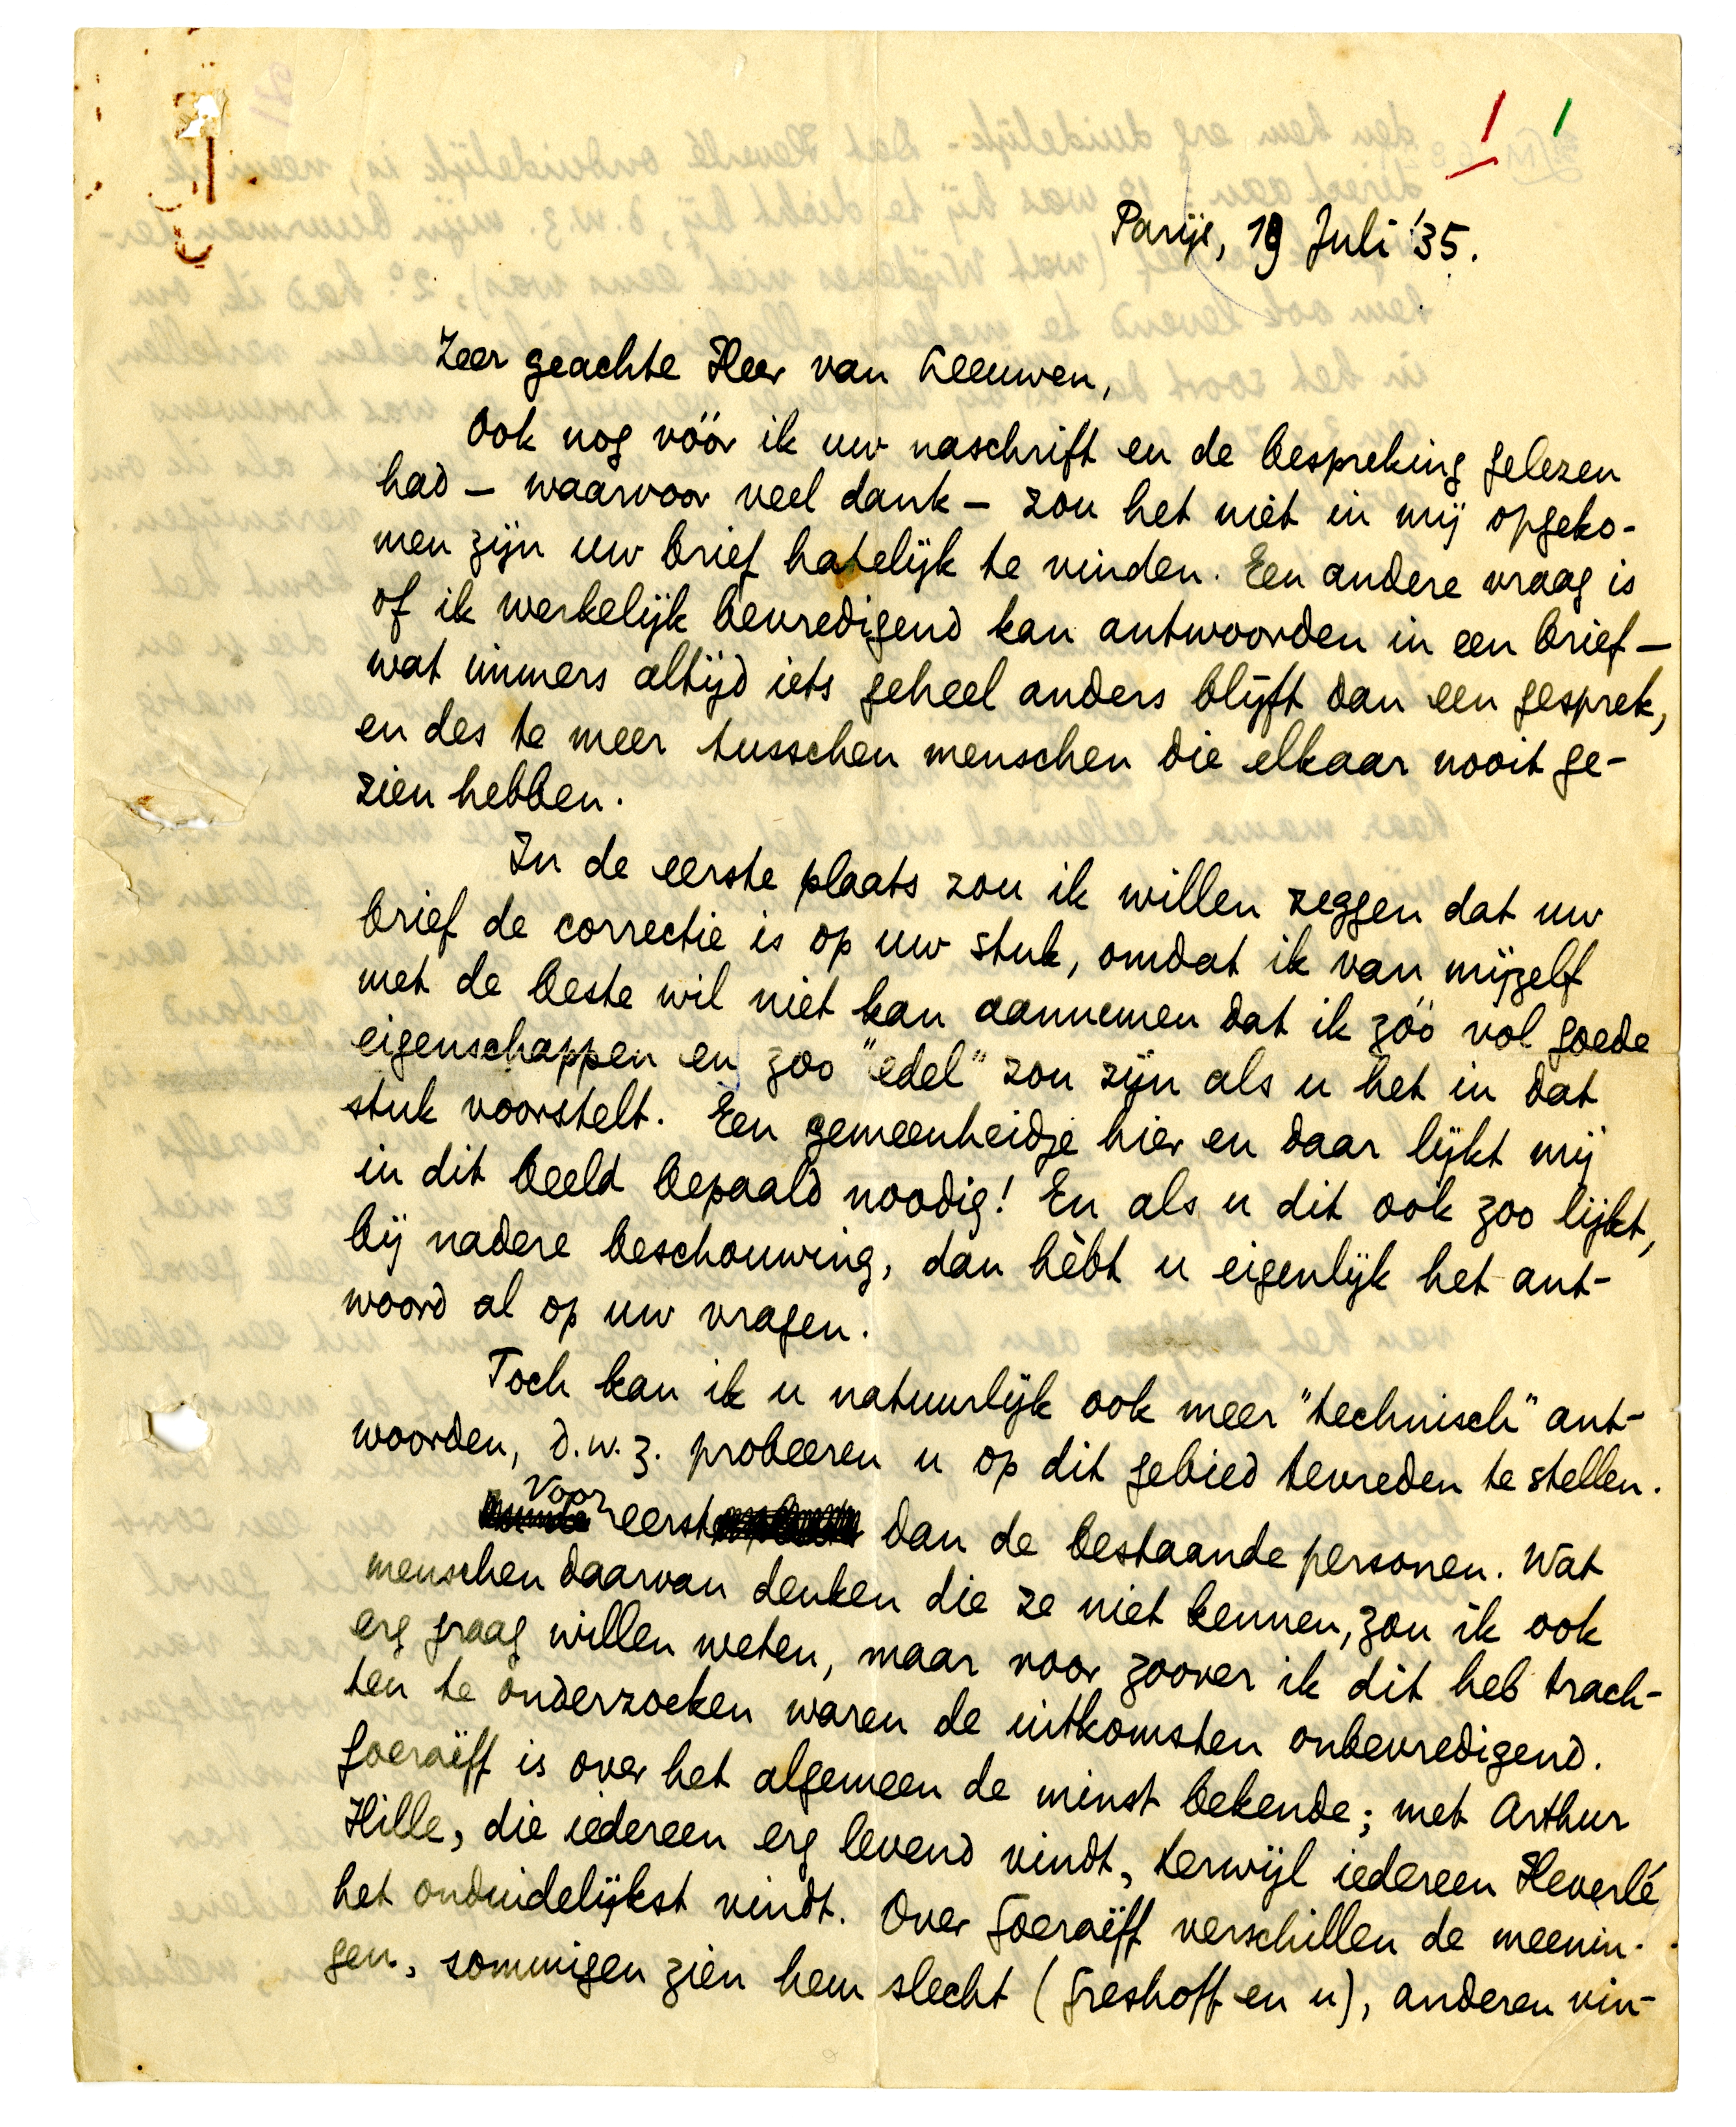 Parijs, 19 Juli '35.
Zeer geachte Heer van Leeuwen,
Ook nog vóór ik uw naschrift en de bespreking gelezen
had – waarvoor veel dank – zou het niet in mij opgeko-
men zijn uw brief hatelijk te vinden. Een andere vraag is
of ik werkelijk bevredigend kan antwoorden in een brief –
wat immers altijd iets geheel anders blijft dan een gesprek,
en des te meer tusschen menschen die elkaar nooit ge-
zien hebben.
In de eerste plaats zou ik willen zeggen dat uw
brief de correctie is op uw stuk, omdat ik van mijzelf
met de beste wil niet kan aannemen dat ik zóó vol goede
eigenschappen en zoo "edel" zou zijn als u het in dat
stuk voorstelt. Een gemeenheidje hier en daar lijkt mij
in dit beeld bepaald noodig! En als u dit ook zoo lijkt,
bij nadere beschouwing, dan hèbt u eigenlijk het ant-
woord al op uw vragen.
Toch kan ik u natuurlijk ook meer "technisch" ant-
woorden, d.w.z. probeeren u op dit gebied tevreden te stellen.
Voor eerst dan de bestaande personen. Wat
menschen daarvan denken die ze niet kennen, zou ik ook
erg graag willen weten, maar voor zoover ik dit heb trach-
ten te onderzoeken waren de uitkomsten onbevredigend.
Goeraëff is over het algemeen de minst bekende; met Arthur
Hille, die iedereen erg levend vindt, terwijl iedereen Héverlé
het onduidelijkst vindt. Over Goeraëff verschillen de meenin-
gen, sommigen zien hem slecht (Greshoff en u), anderen vin-